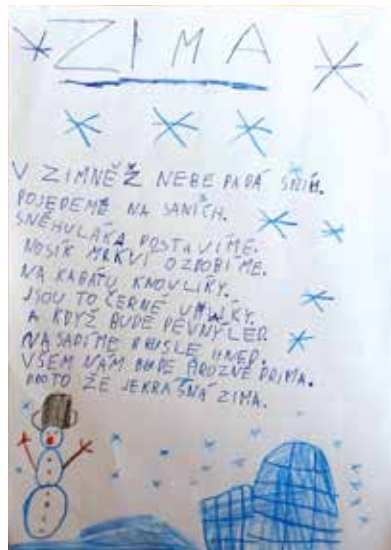 ZIMA
V ZIMNĚŽ NEBE PADÁ SNÍH.
POJEDEME NA SANÍCH.
SNĚHULÁKA POSTAVÍME.
NOSÍK MRKVÍ OZDOBÍME.
NA KABÁTU KNOVLÍKY.
JSOU TO ČERNÉ UHLÍKY.
A KDYŽ BUDE PEVNÝ LED
NASADÍME BRUSLE HNED.
VŠEM NÁM BUDE HROZNĚ PRIMA.
PROTO ŽE JEKRÁSNÁ ZIMA.